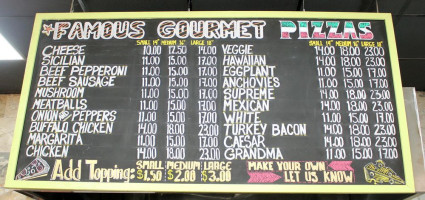 FAMOUS GOURMET PIZZAS
SMALL 14" MEDIUM 16" LARGE 18"
CHEESE 10.00 12.50 14.00
SICILIAN 11.00 15.00 17.00
BEEF PEPPERONI 11.00 15.00 17.00
BEEF SAUSAGE 11.00 15.00 17.00
MUSHROOM 11.00 15.00 17.00
MEATBALLS 11.00 15.00 17.00
ONION PEPPERS 11.00 15.00 17.00
BUFFALO CHICKEN 14.00 18.00 23.00
MARGARITA 11.00 15.00 17.00
CHICKEN 14.00 18.00 23.00
SMALL 14" MEDIUM 16" LARGE 18"
VEGGIE 14.00 18.00 23.00
HAWAIIAN 14.00 18.00 23.00
EGGPLANT 11.00 15.00 17.00
ANCHOVIES 11.00 15.00 17.00
SUPREME 14.00 18.00 23.00
MEXICAN 14.00 18.00 23.00
WHITE 11.00 15.00 17.00
TURKEY BACON 14.00 18.00 23.00
CAESAR 14.00 18.00 23.00
GRANDMA 11.00 15.00 17.00
Add Topping: SMALL MEDIUM LARGE
$1.50 $2.00 $3.00
MAKE YOUR OWN
LET US KNOW